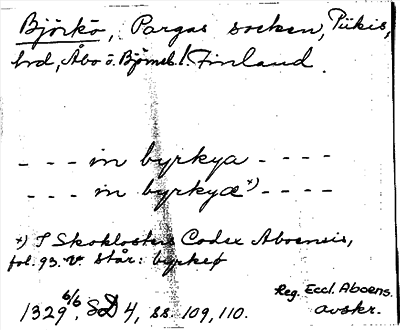 Björkö, Pargas socken, Piikis,
hrd, Åbo o. Björneb. l. Finland.
- - - in byrkya - - - -
- - - in byrkyæ x) - - - -
x) I Skoklosters Codex Aboensis,
fol. 93. v. står: byrkeø
Reg. Eccl. Aboens.
avskr.
1329 6/6, SD 4, ss. 109, 110.